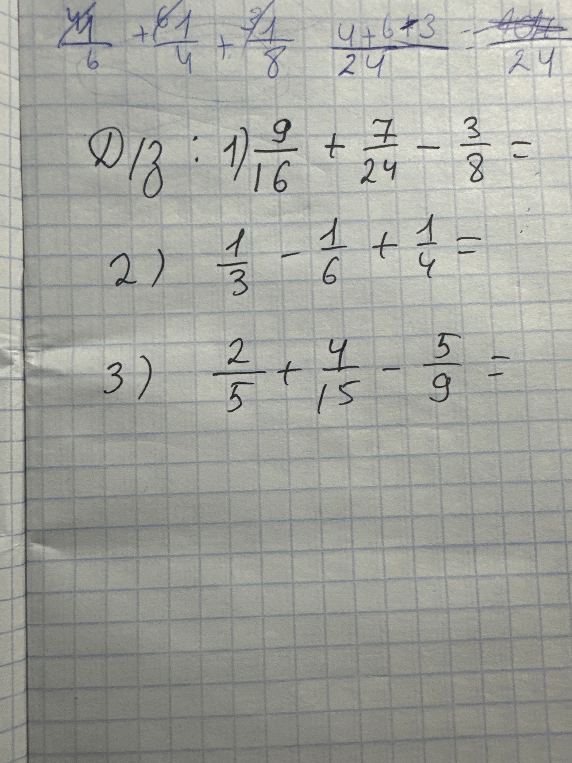 1/6 + 1/4 + 1/8 (4+6+3)/24 = /24
Д/з : 1) 9/16 + 7/24 - 3/8 =
2) 1/3 - 1/6 + 1/4 =
3) 2/5 + 4/15 - 5/9 =